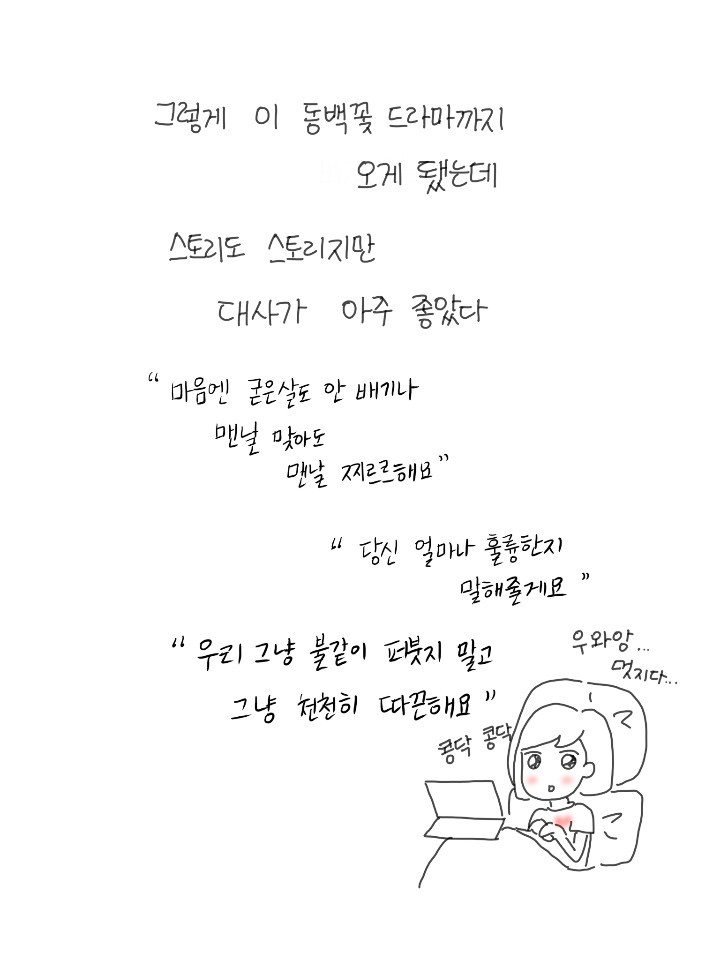 그렇게 이 동백꽃 드라마까지
오게 됐는데
스토리도 스토리지만
대사가 아주 좋았다
“마음엔 굳은살도 안 배기나
맨날 맞아도
맨날 찌르르해요”
“당신 얼마나 훌륭한지
말해줄게요”
“우리 그냥 불같이 퍼붓지 말고
그냥 천천히 따끈해요”
우와앙...
멋지다...
콩닥 콩닥